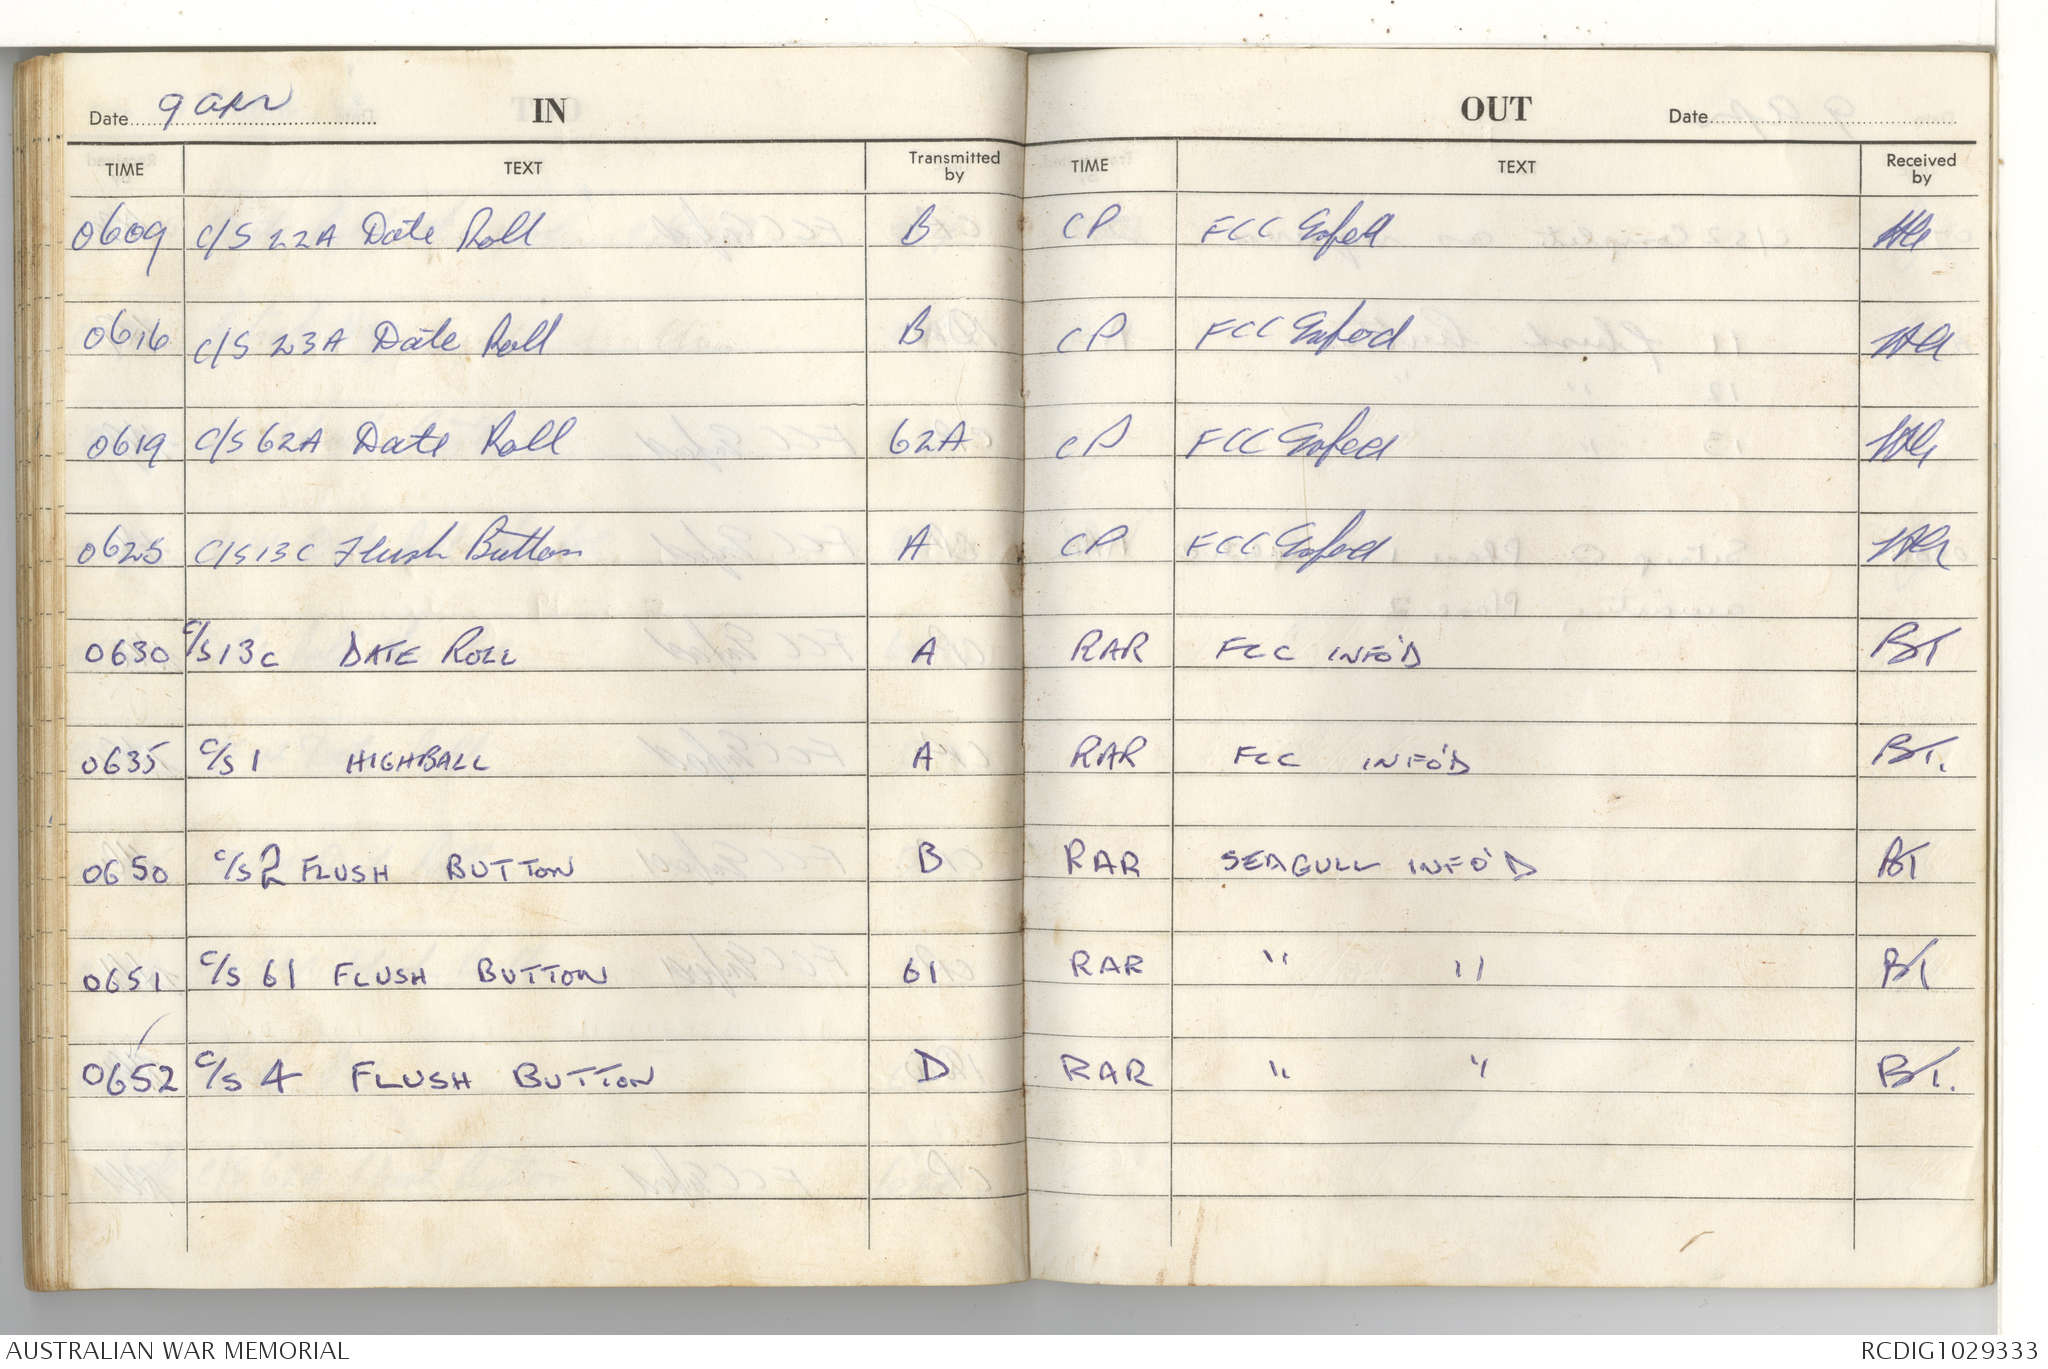 Date 9 APR IN
TIME TEXT Transmitted by
0609 C/S 22A Date Roll B
0616 C/S 23A Date Roll B
0619 C/S 62A Date Roll 62A
0625 C/S 13C Flush Button A
0630 C/S 13C DATE ROLL A
0635 C/S 1 HIGHBALL A
0650 C/S 2 FLUSH BUTTON B
0651 C/S 61 FLUSH BUTTON 61
0652 C/S 4 FLUSH BUTTON D
OUT Date
TIME TEXT Received by
CP FCC
CP FCC
CP FCC
CP FCC
RAR FCC INFO'D BT
RAR FCC INFO'D BT.
RAR SEAGULL INFO'D BT
RAR " " BT
RAR " " BT.
AUSTRALIAN WAR MEMORIAL RCDIG1029333